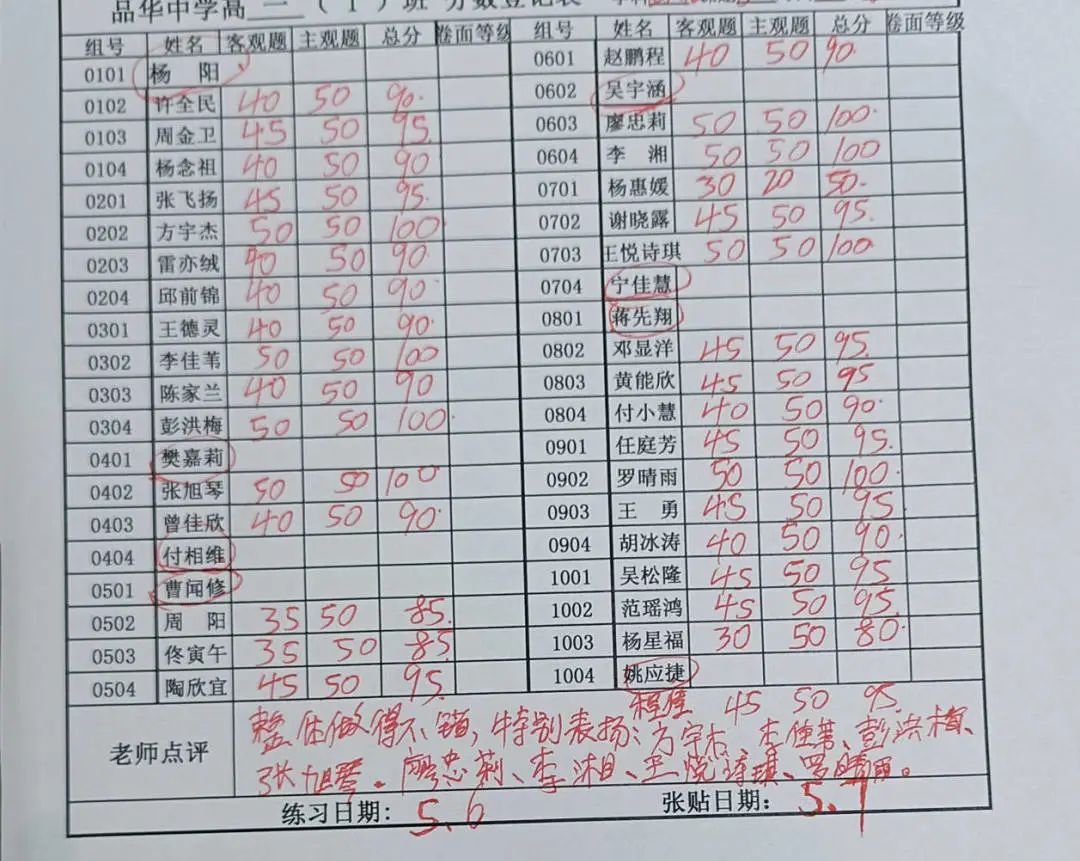 品华中学高 一 （1）班 分数登记表
组号 姓名 客观题 主观题 总分 卷面等级 组号 姓名 客观题 主观题 总分 卷面等级
0101 杨阳 0601 赵鹏程 40 50 90
0102 许全民 40 50 90. 0602 吴宇涵
0103 周金卫 45 50 95. 0603 廖忠莉 50 50 100.
0104 杨念祖 40 50 90 0604 李湘 50 50 100
0201 张飞扬 45 50 95. 0701 杨惠媛 30 20 50.
0202 方宇杰 50 50 100 0702 谢晓露 45 50 95.
0203 雷亦绒 90 50 90. 0703 王悦诗琪 50 50 100
0204 邱前锦 40 50 90. 0704 宁佳慧
0301 王德灵 40 50 90. 0801 蒋先翔
0302 李佳苇 50 50 100 0802 邓显洋 45 50 95.
0303 陈家兰 40 50 90 0803 黄能欣 45 50 95
0304 彭洪梅 50 50 100. 0804 付小慧 40 50 90.
0401 樊嘉莉 0901 任庭芳 45 50 95.
0402 张旭琴 50 50 100 0902 罗晴雨 50 50 100.
0403 曾佳欣 40 50 90. 0903 王勇 45 50 95
0404 付相维 0904 胡冰涛 40 50 90.
0501 曹闻修 1001 吴松隆 45 50 95
0502 周阳 35 50 85. 1002 范瑶鸿 45 50 95.
0503 佟寅午 35 50 85 1003 杨星福 30 50 80.
0504 陶欣宜 45 50 95. 1004 姚应捷
45 50 95.
老师点评 整体做得不错，特别表扬：方宇杰、李佳苇、彭洪梅、
张旭琴、廖忠莉、李湘、王悦诗琪、罗晴雨。
练习日期: 5.6 张贴日期: 5.7